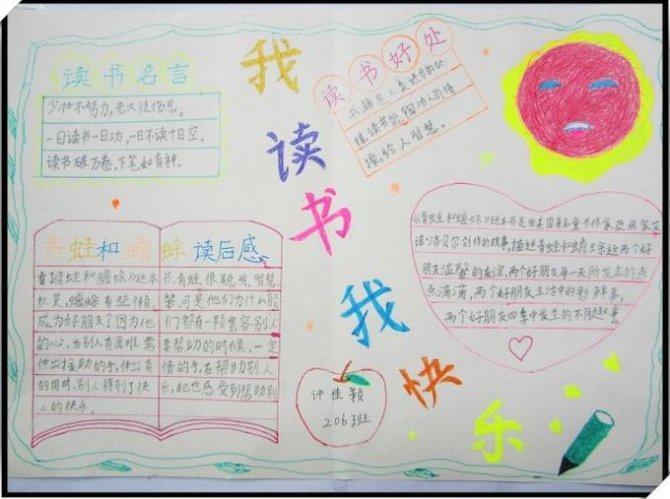 我读书我快乐
读书名言
少壮不努力,老大徒伤悲。
一日读书一日功,一日不读十日空。
读书破万卷,下笔如有神。
读书好处
书籍是人类进步的动
梯,读书能陶冶人的情
操,给人智慧。
青蛙和蟾蜍读后感
看过《青蛙和蟾蜍》这本书,青蛙很聪明、智慧
成为好朋友?因为他们都有一颗宽容别人
的心,当别人有困难需要帮助的时候,一定
伸出援助的手,伸出有情的手,在帮助别人
的同时,别人得到了快乐,自己也感受到帮助别
人的快乐。
《青蛙和蟾蜍》这本书是由美国著名童书作家
诺·洛贝尔创作的故事,描述青蛙和蟾蜍这两个好
朋友温馨的友谊,两个好朋友每一天所发生的点
点滴滴,两个好朋友生活中的新鲜事,
两个好朋友四季中发生的不同趣事
许佳颖
206班